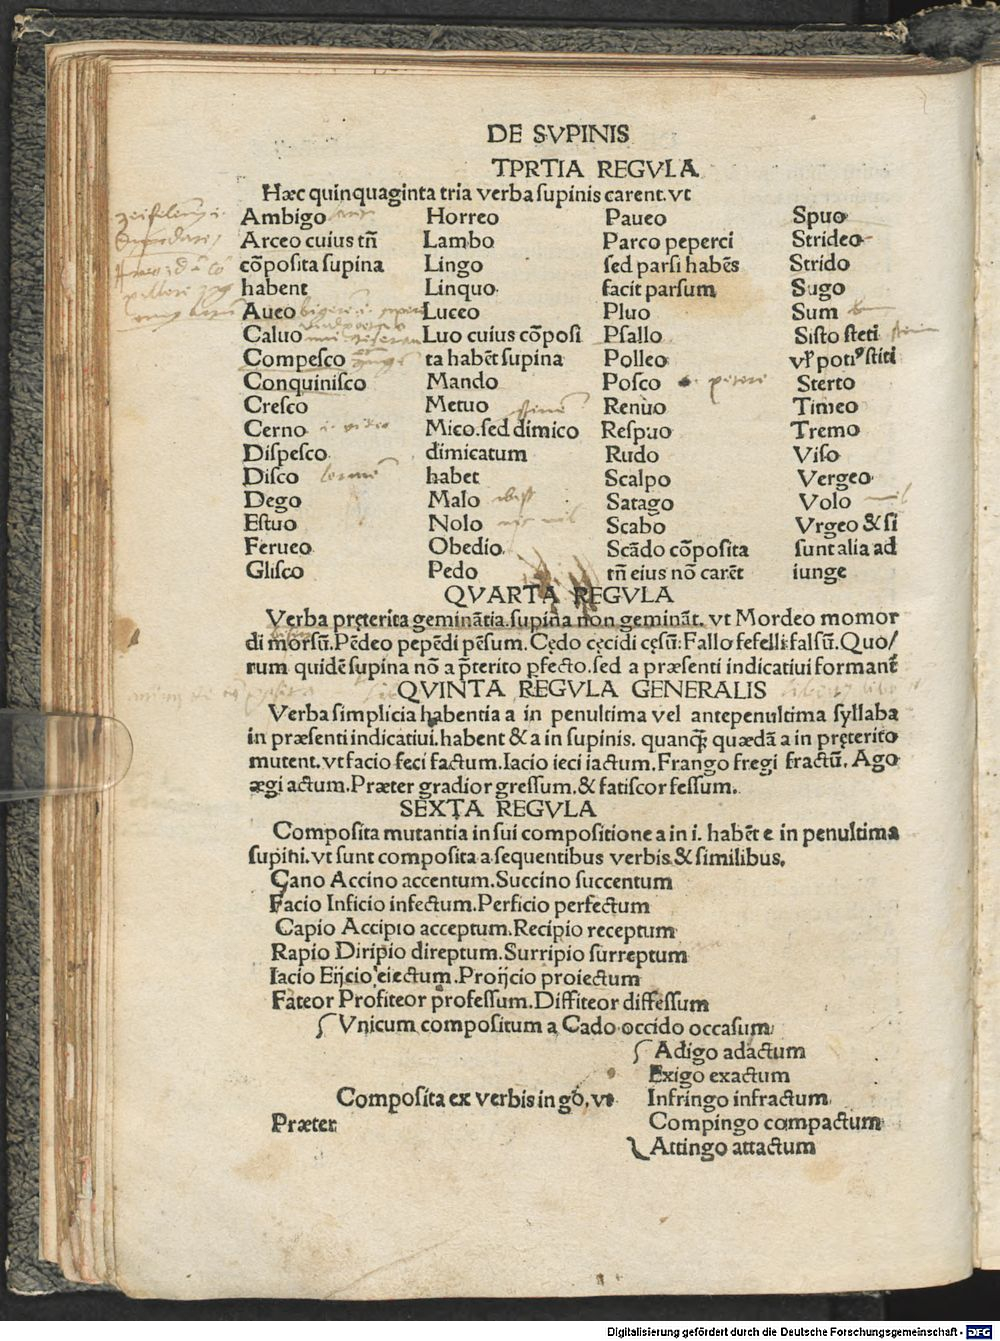 DE SVPINIS
TPRTIA REGVLA
Hæc quinquaginta tria verba ſupinis carent. vt
Ambigo
Arceo cuius tn̄
cōpoſita ſupina
habent
Aueo
Caluo
Compeſco
Conquiniſco
Creſco
Cerno
Diſpeſco
Diſco
Dego
Eſtuo
Ferueo
Gliſco
Horreo
Lambo
Lingo
Linquo
Luceo
Luo cuius cōpoſi
ta habēt ſupina
Mando
Metuo
Mico. ſed dimico
dimicatum
habet
Malo
Nolo
Obedio
Pedo
Paueo
Parco peperci
ſed parſi habēs
facit parſum
Pluo
Pſallo
Polleo
Poſco
Renuo
Reſpuo
Rudo
Scalpo
Satago
Scabo
Scādo cōpoſita
tn̄ eius nō carēt
Spuo
Strideo
Strido
Sugo
Sum
Siſto ſteti
vł potiꝰ ſtiti
Sterto
Timeo
Tremo
Viſo
Vergeo
Volo
Vrgeo & ſi
ſunt alia ad
iunge
QVARTA REGVLA
Verba pręterita geminātia. ſupina non gemināt. vt Mordeo momor
di morſū. Pēdeo pepēdi pēſum. Cędo cęcidi cęſū: Fallo fefelli falſū. Quo/
rum quidē ſupina nō a p̄terito ꝑfecto. ſed a præſenti indicatiui formant̄
QVINTA REGVLA GENERALIS
Verba ſimplicia habentia a in penultima vel antepenultima ſyllaba
in præſenti indicatiui. habent & a in ſupinis. quanq̄; quædā a in pręterito
mutent. vt facio feci factum. Iacio ieci iactum. Frango fregi fractū. Ago
ægi actum. Præter gradior greſſum. & fatiſcor feſſum.
SEXTA REGVLA
Compoſita mutantia in ſui compoſitione a in i. habēt e in penultima
ſupini. vt ſunt compoſita a ſequentibus verbis & ſimilibus.
Cano Accino accentum. Succino ſuccentum
Facio Inficio infectum. Perficio perfectum
Capio Accipio acceptum. Recipio receptum
Rapio Diripio direptum. Surripio ſurreptum
Iacio Eijcio eiectum. Proijcio proiectum
Fateor Profiteor profeſſum. Diffiteor diffeſſum
Vnicum compoſitum a Cado occido occaſum
Adigo adactum
Exigo exactum
Compoſita ex verbis in go, vt Infringo infractum
Præter Compingo compactum
Attingo attactum
Digitalisierung gefördert durch die Deutsche Forschungsgemeinschaft - DFG